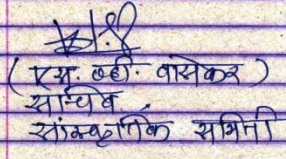 ( एस. व्ही. वासेकर )
सचिव
सांस्कृतिक समिती